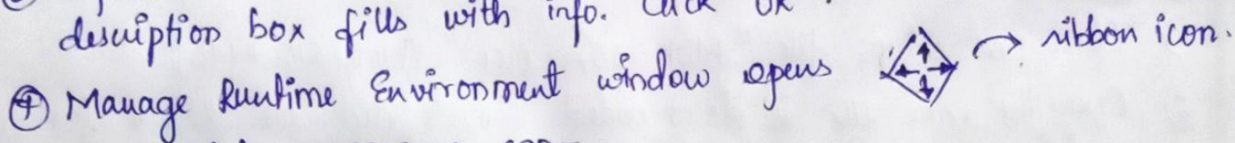 description box fills with info. Click OK
④ Manage Runtime Environment window opens → ribbon icon.